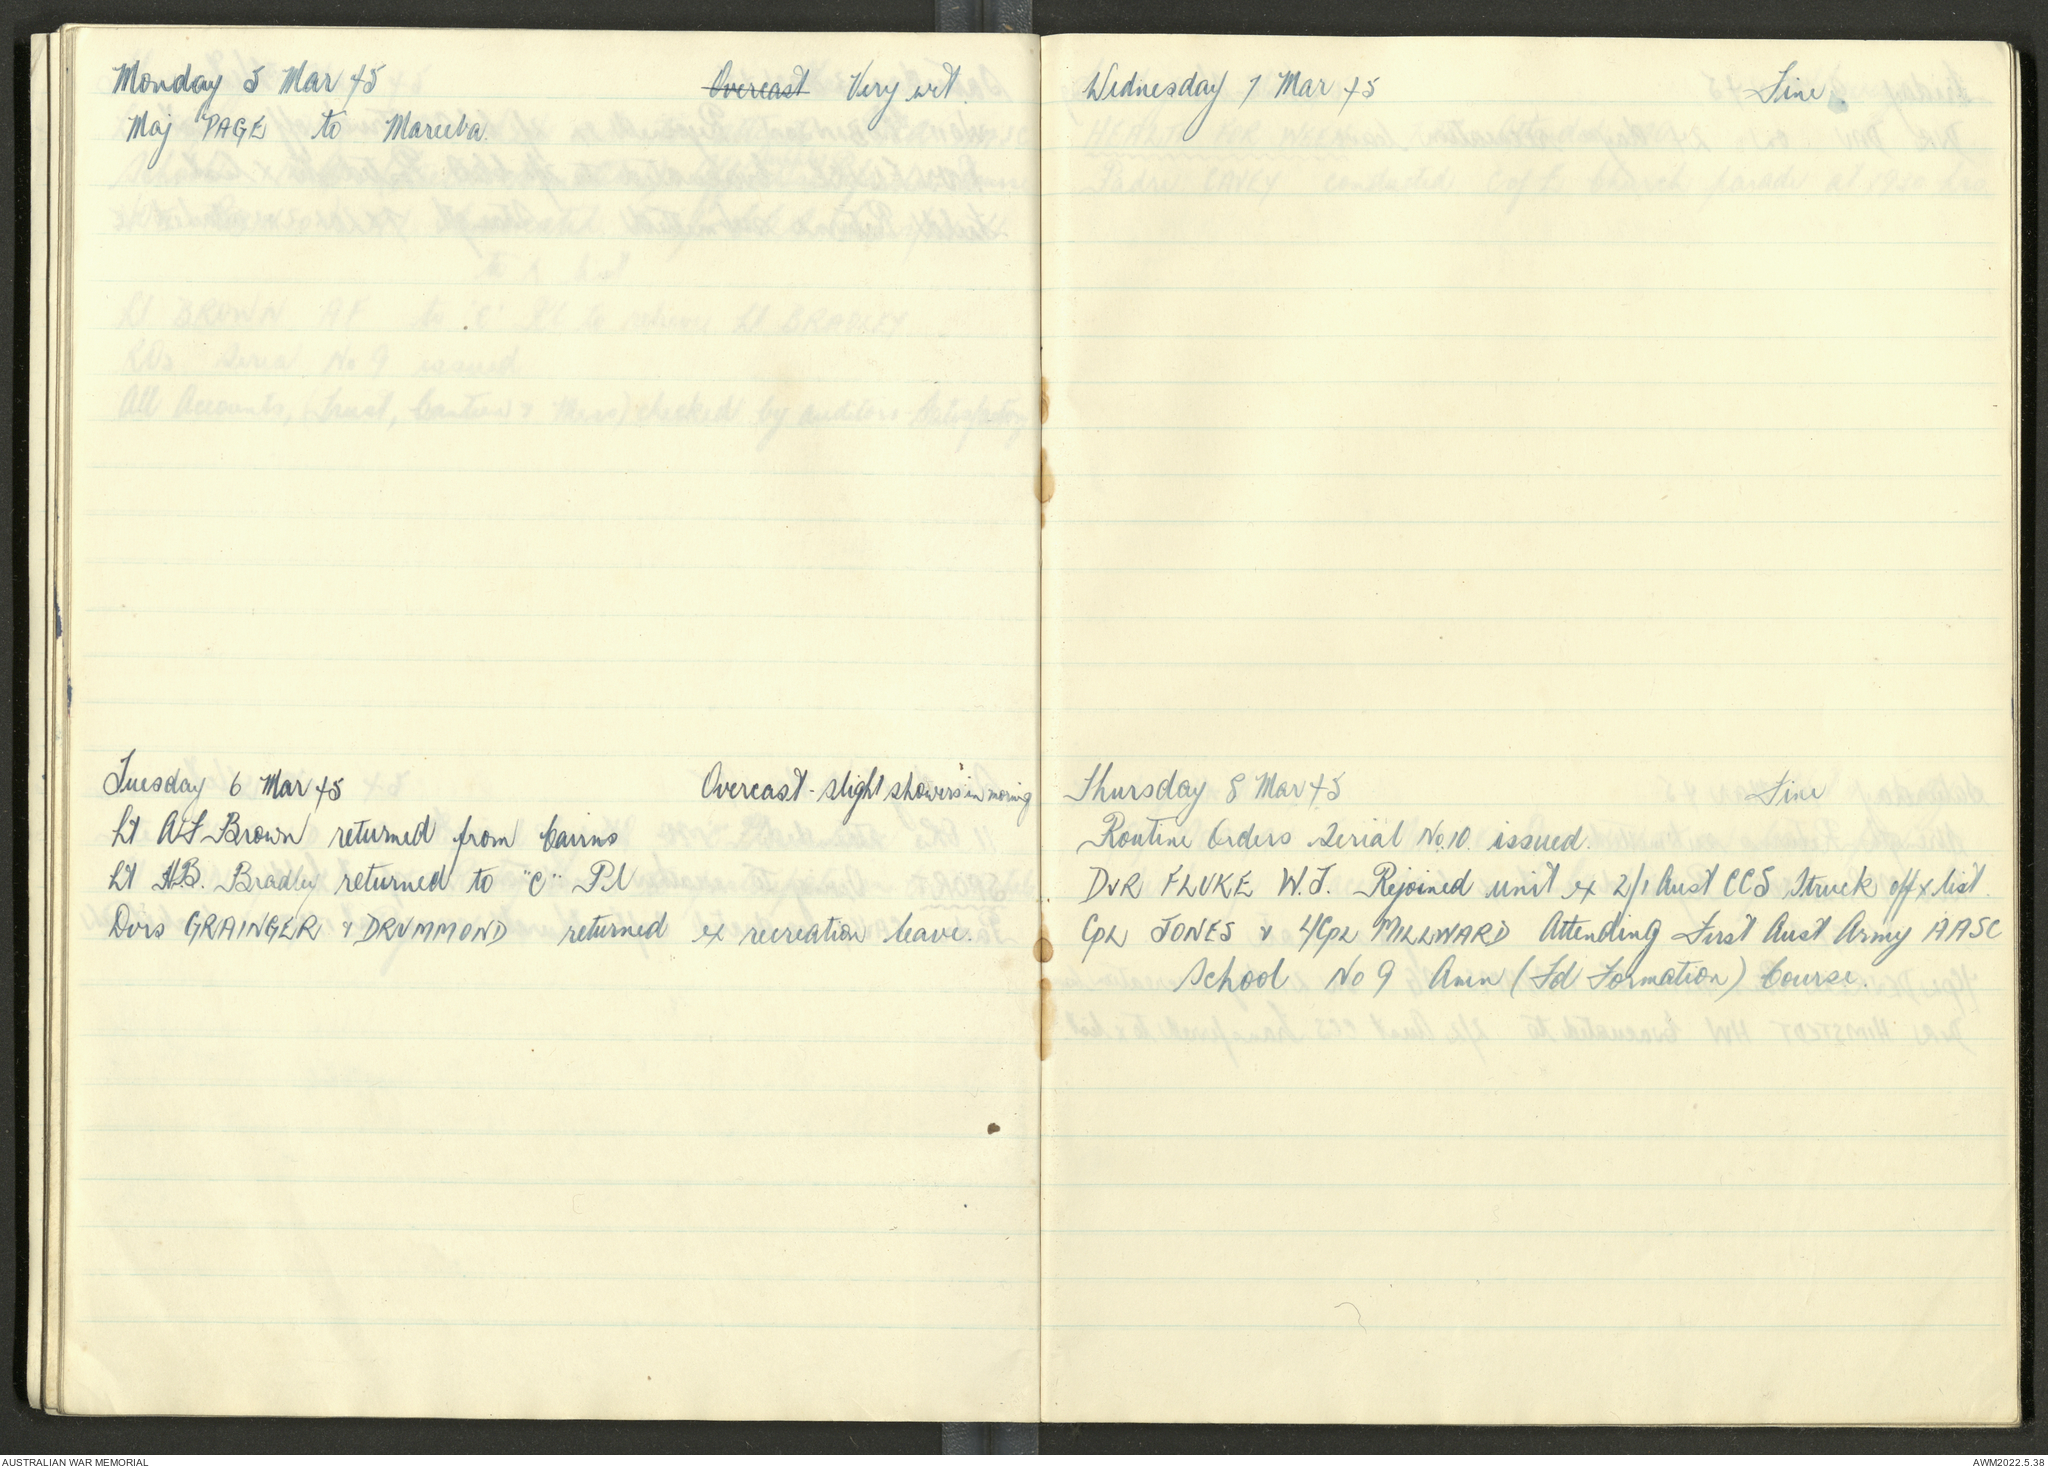 Monday 5 Mar 45 ~~Overcast~~ Very wet.
Maj PAGE to Mareeba.
Tuesday 6 Mar 45 Overcast - slight showers in morning
Lt A F Brown returned from Cairns
Lt H.B. Bradley returned to "C" Pl
Dvrs GRAINGER & DRUMMOND returned ex recreation leave.
Wednesday 7 Mar 45 Fine.
Thursday 8 Mar 45 Fine
Routine Orders Serial No. 10. issued.
DVR FLUKE W.J. Rejoined unit ex 2/1 Aust CCS Struck off x list.
Cpl JONES & L/Cpl MILLWARD Attending First Aust Army AASC
School No 9 Amn (Fd Formation) Course.
AUSTRALIAN WAR MEMORIAL
AWM2022.5.38